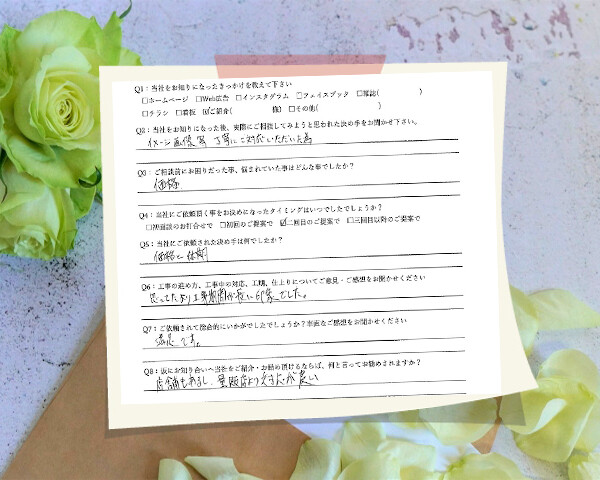 Q1：当社をお知りになったきっかけを教えて下さい
□ホームページ □Web広告 □インスタグラム □フェイスブック □雑誌( )
□チラシ □看板 ☑ご紹介( 様) □その他( )
Q2：当社をお知りになった後、実際にご相談してみようと思われた決め手をお聞かせ下さい。
イメージ画像等 丁寧にご対応いただいた為
Q3：ご相談前にお困りだった事、悩まれていた事はどんな事でしたか？
価格
Q4：当社にご依頼頂く事をお決めになったタイミングはいつでしたでしょうか？
□初回面談のお打合せで □初回のご提案で ☑二回目のご提案で □三回目以降のご提案で
Q5：当社にご依頼された決め手は何でしたか？
価格と 体制
Q6：工事の進め方、工事中の対応、工期、仕上りについてご意見・ご感想をお聞かせください
思ってたより工事期間が長い印象でした。
Q7：ご依頼されて総合的にいかがでしたでしょうか？率直なご感想をお聞かせください
満足です。
Q8：仮にお知り合いへ当社をご紹介・お勧め頂けるならば、何と言ってお勧めされますか？
店舗もあるし、量販店より対応が良い